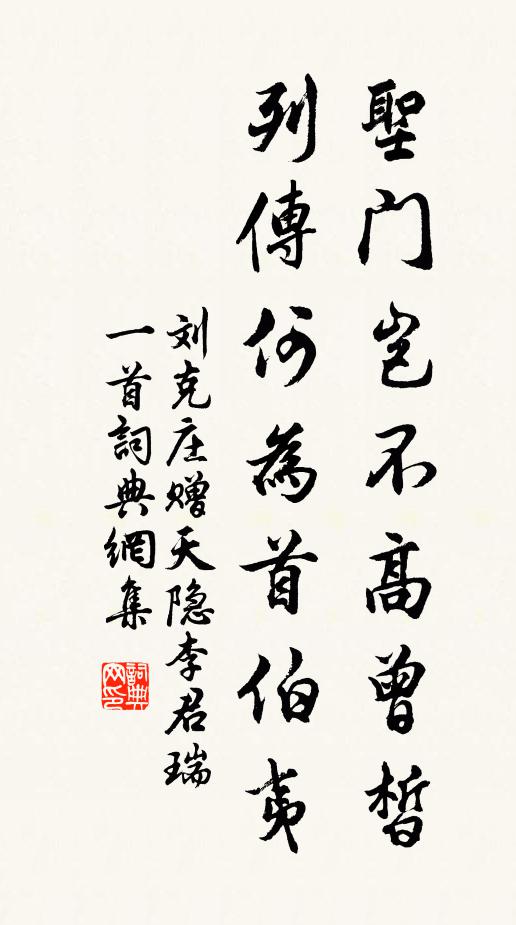 聖門豈不高曾晳
列傳何為首伯夷
刘克庄赠天隐李君瑞
一首詞典網集
詞典网印